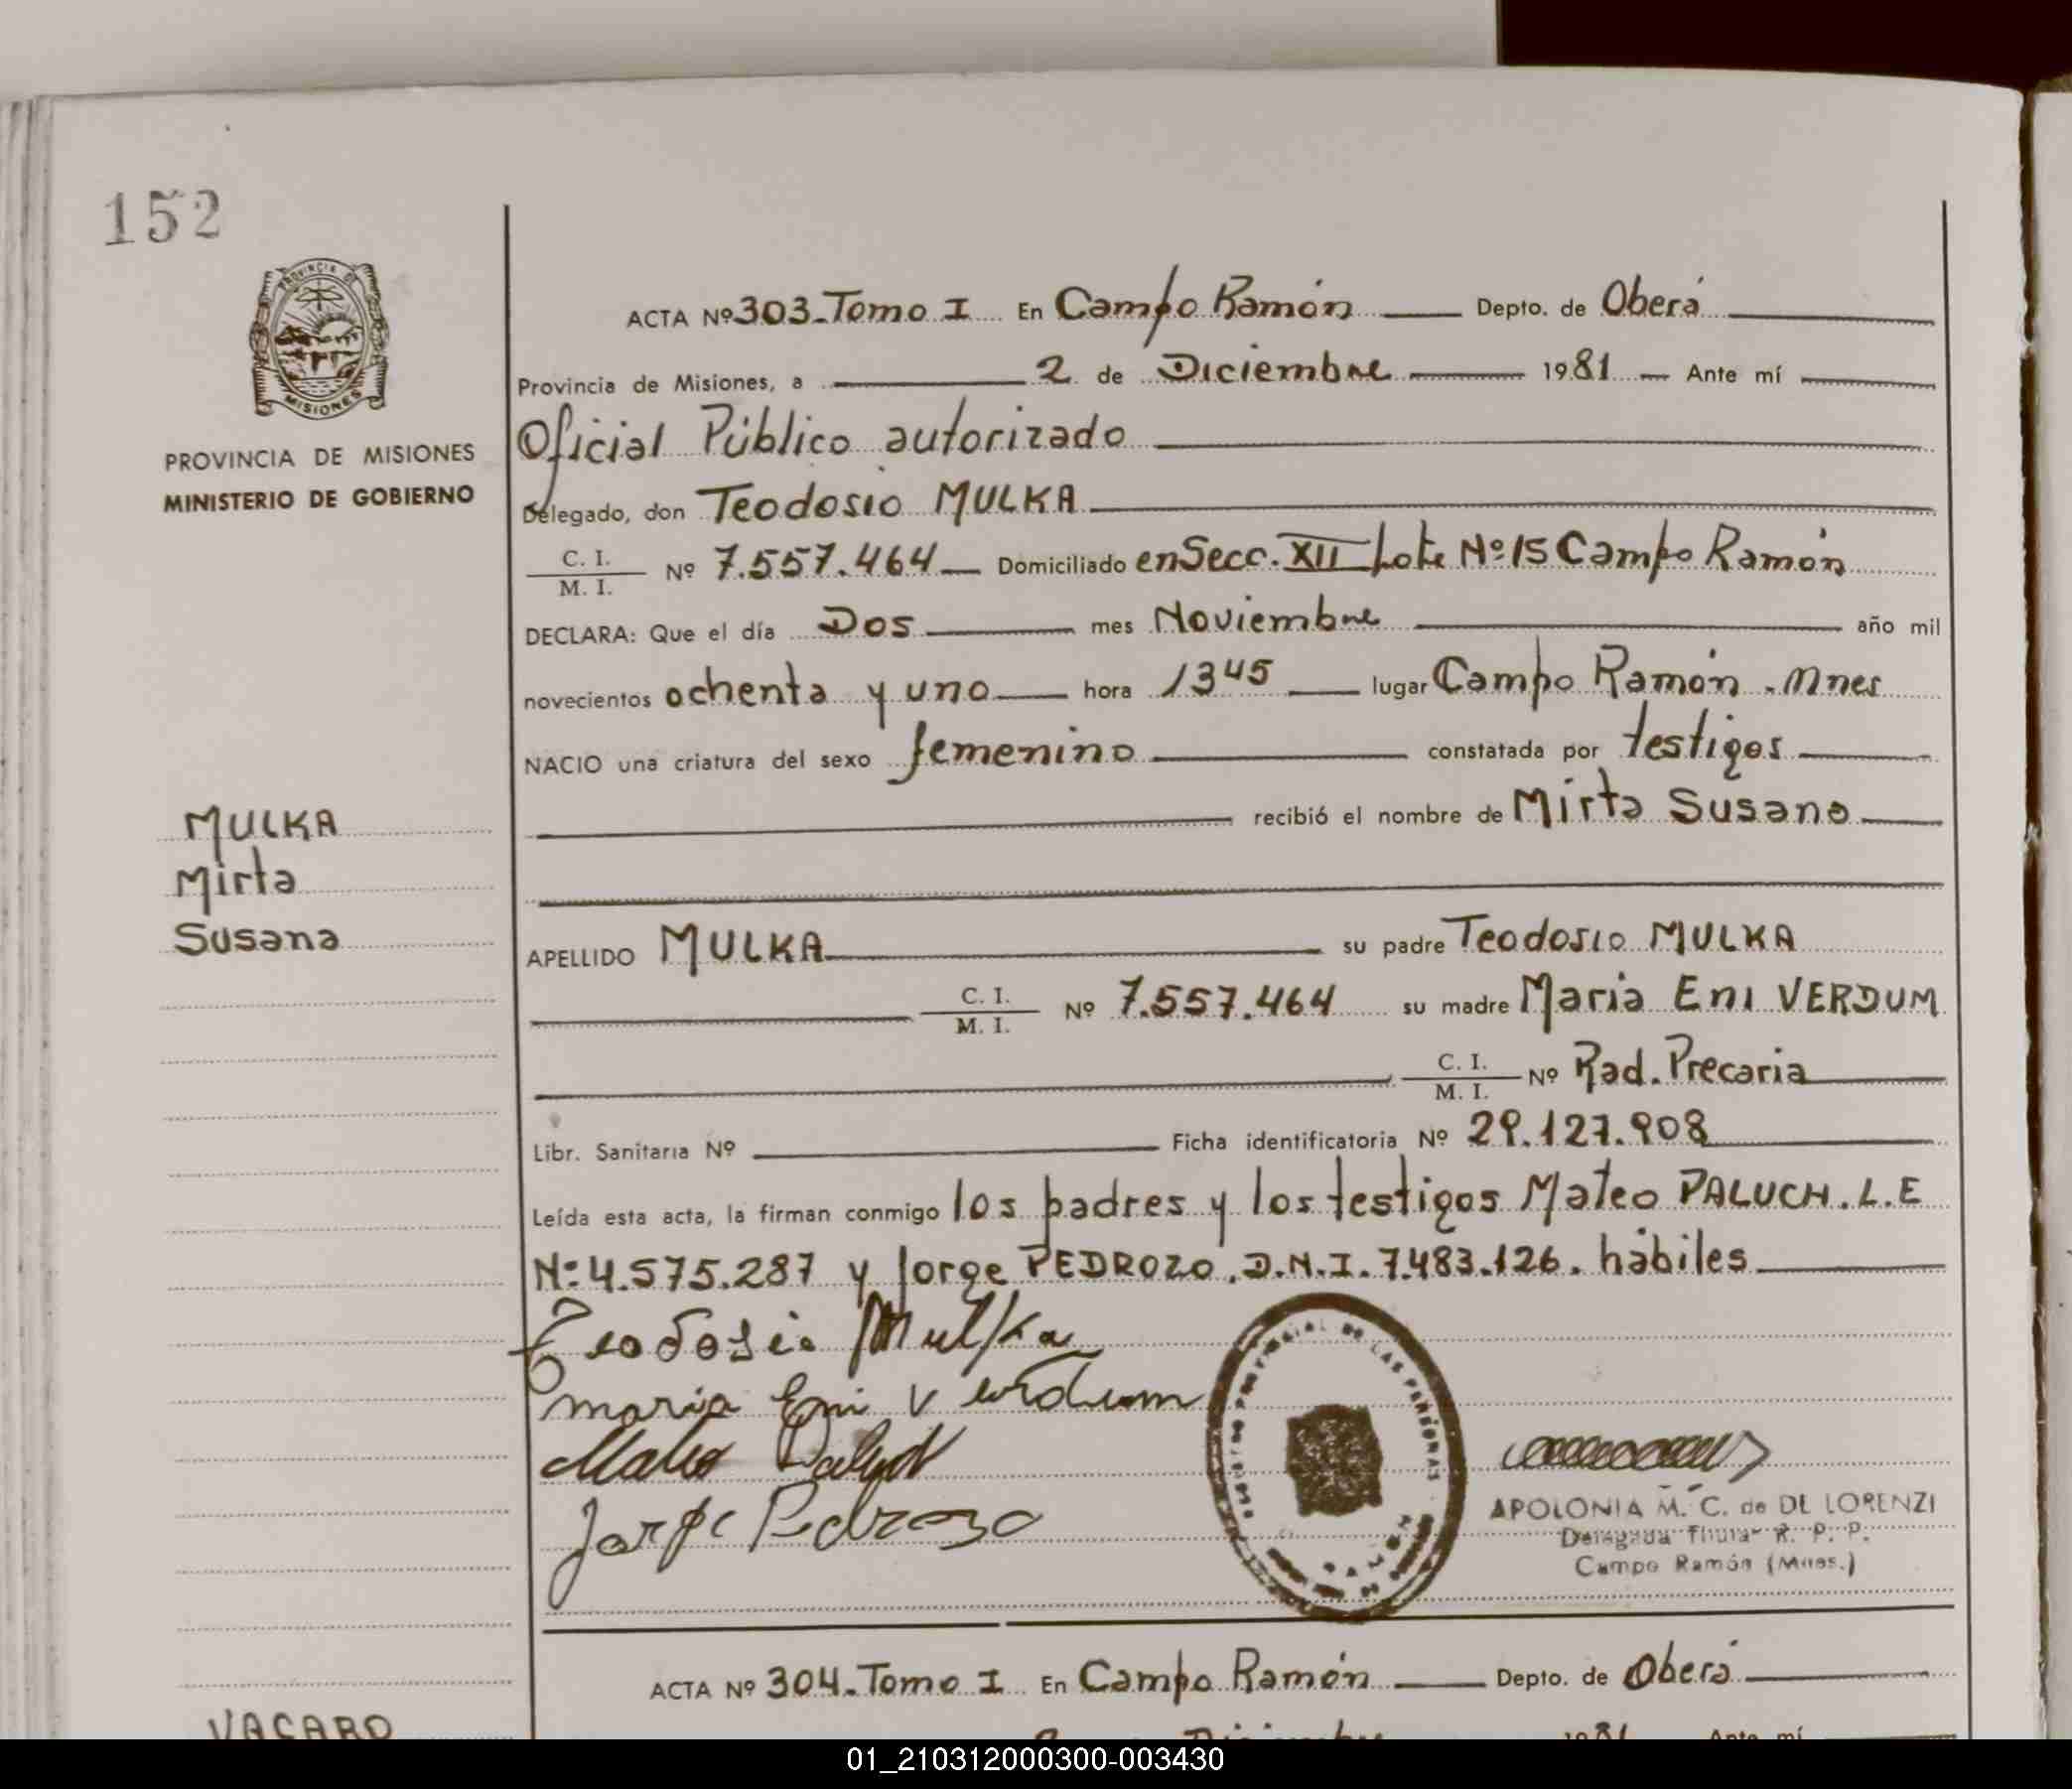 152
PROVINCIA DE MISIONES
PROVINCIA DE MISIONES
MINISTERIO DE GOBIERNO
ACTA Nº 303. Tomo I En Campo Ramón Depto. de Oberá
Provincia de Misiones, a 2 de Diciembre 1981 Ante mí
Oficial Público autorizado
Delegado, don Teodosio MULKA
C. I.
M. I. Nº 7.557.464 Domiciliado en Secc. XII Lote Nº 15 Campo Ramón
DECLARA: Que el día Dos mes Noviembre año mil
novecientos ochenta y uno hora 13 45 lugar Campo Ramón. Mnes
NACIO una criatura del sexo femenino constatada por testigos
recibió el nombre de Mirta Susana
MULKA
Mirta
Susana
APELLIDO MULKA su padre Teodosio MULKA
C. I.
M. I. Nº 7.557.464 su madre Maria Eni VERDUM
C. I.
M. I. Nº Rad. Precaria
Libr. Sanitaria Nº Ficha identificatoria Nº 29.127.908
Leída esta acta, la firman conmigo los padres y los testigos Mateo PALUCH. L.E
Nº 4.575.287 y Jorge PEDROZO. D.N.I. 7.483.126. hábiles
Teodosio Mulka
maria Eni Verdum
Mateo Paluch
Jorge Pedrozo
DE LAS PERSONAS
APOLONIA M. C. de DE LORENZI
Delegada Titular R. P. P.
Campo Ramón (Mnes.)
ACTA Nº 304. Tomo I En Campo Ramón Depto. de Oberá
Diciembre 1981 Ante mí
VACARO
01_210312000300-003430